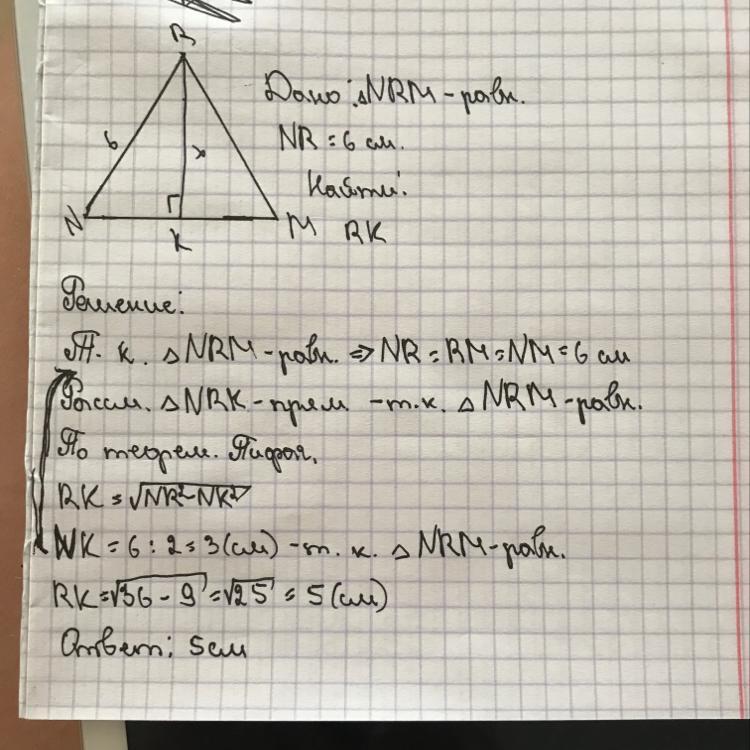 R
Дано: △NRM - равн.
6
NR = 6 см.
x
Найти:
N
K
M
RK
Решение:
Т. к. △NRM - равн. ⇒ NR = RM = NM = 6 см
Рассм. △NRK - прям - т.к. △NRM - равн.
По теорем. Пифаг.
RK = √NR² - NK²
NK = 6 : 2 = 3 (см) - т. к. △NRM - равн.
RK = √36 - 9 = √25 = 5 (см)
Ответ: 5см